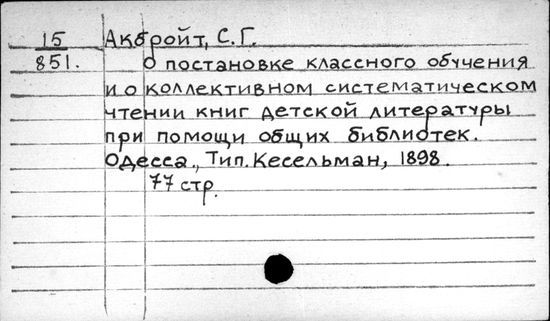 15 Акбройт, С.Г.
851. О постановке классного обучения
и о коллективном систематическом
чтении книг детской литературы
при помощи общих библиотек.
Одесса., Тип. Кесельман, 1898.
77 стр.